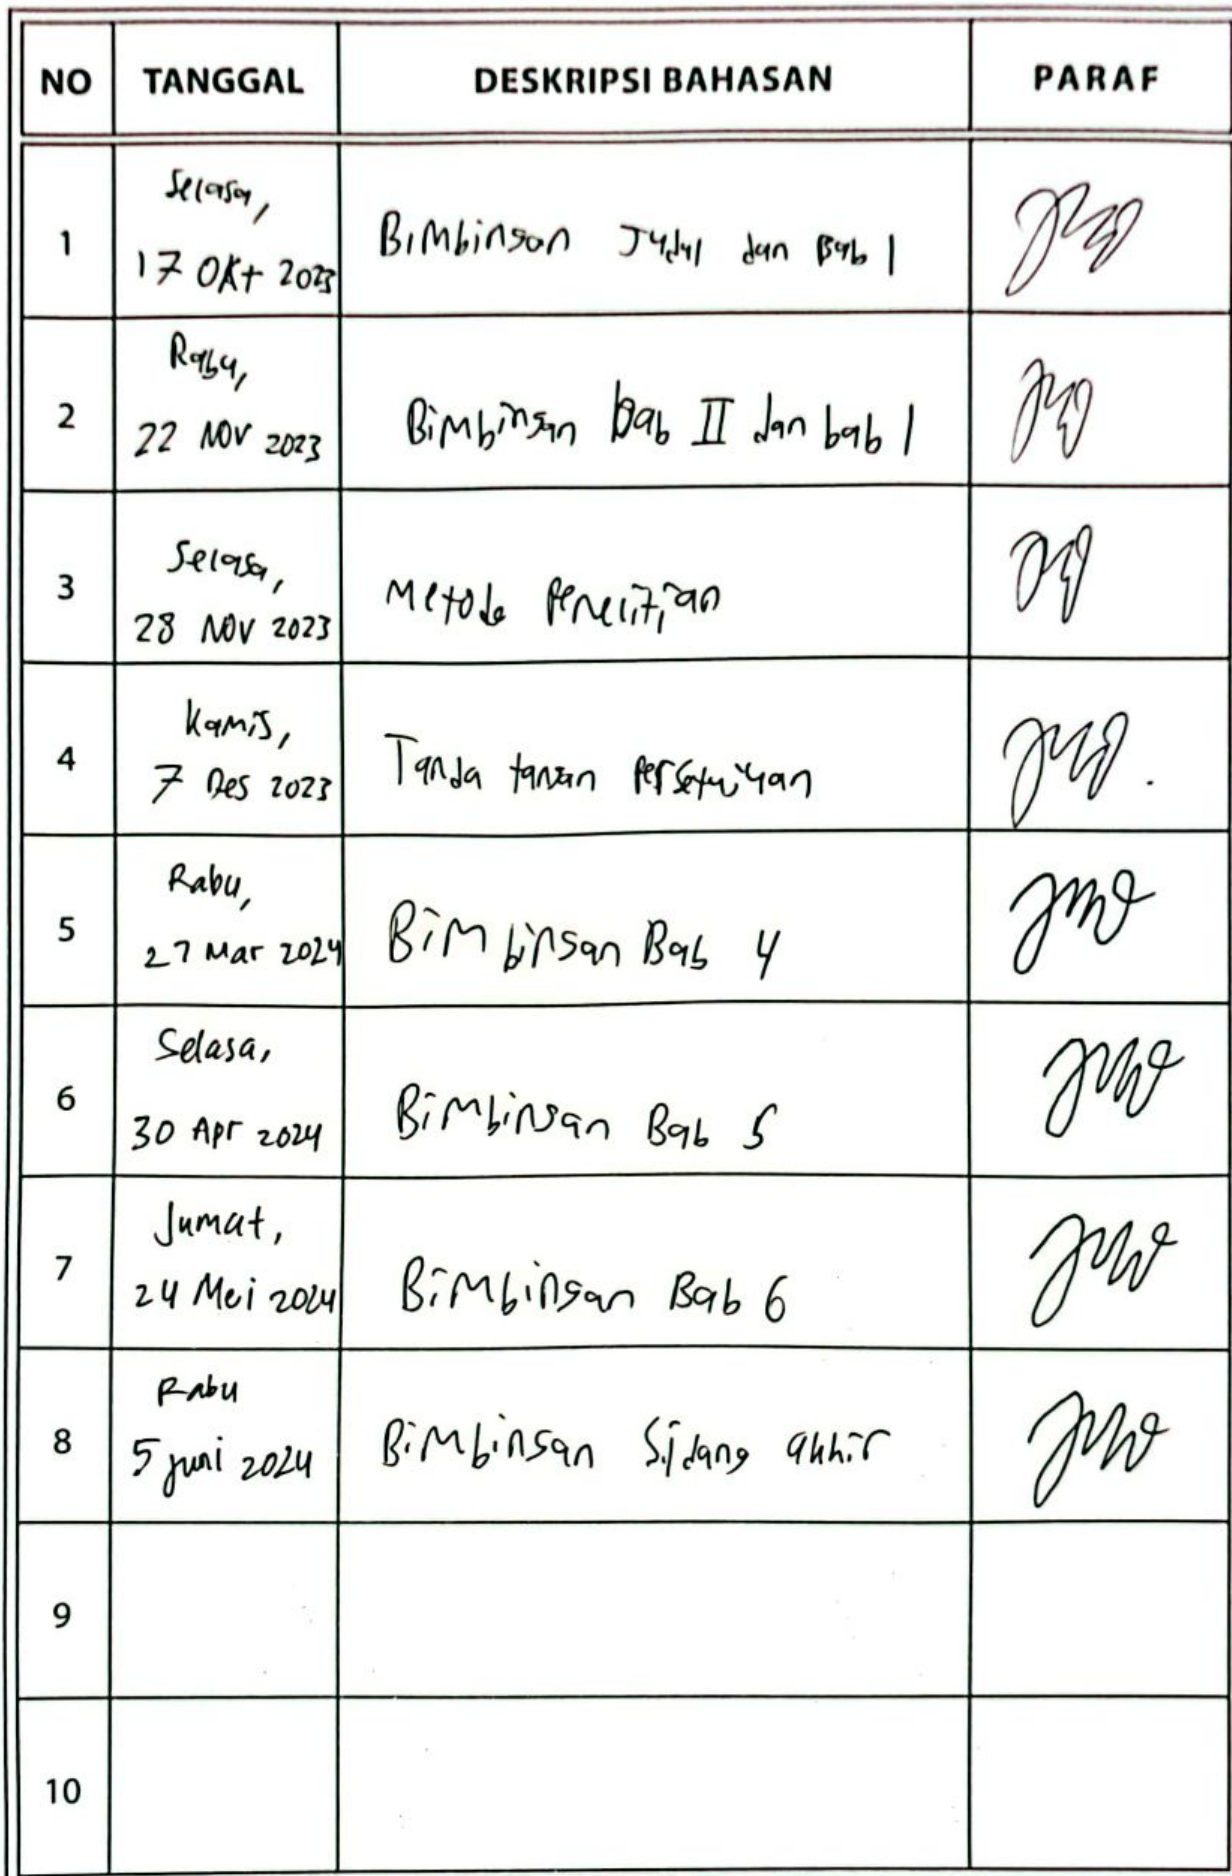 NO TANGGAL DESKRIPSI BAHASAN PARAF
1 Selasa, 17 Okt 2023 Bimbingan Judul dan Bab 1
2 Rabu, 22 Nov 2023 Bimbingan bab II dan bab 1
3 Selasa, 28 Nov 2023 Metode Penelitian
4 Kamis, 7 Des 2023 Tanda tangan Persetujuan
5 Rabu, 27 Mar 2024 Bimbingan Bab 4
6 Selasa, 30 Apr 2024 Bimbingan Bab 5
7 Jumat, 24 Mei 2024 Bimbingan Bab 6
8 Rabu 5 juni 2024 Bimbingan Sidang akhir
9
10